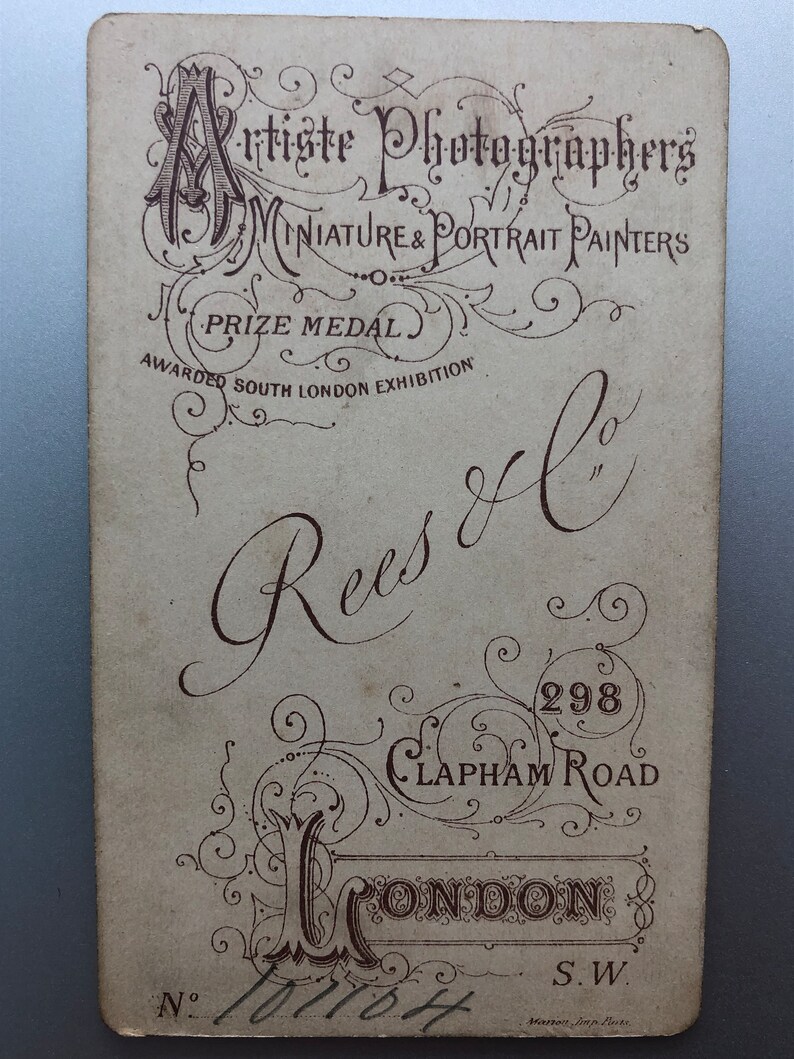 Artiste Photographers
MINIATURE & PORTRAIT PAINTERS
PRIZE MEDAL
AWARDED SOUTH LONDON EXHIBITION
Rees & Co
298
CLAPHAM ROAD
LONDON
S.W.
No 107104
Marion Imp. Paris